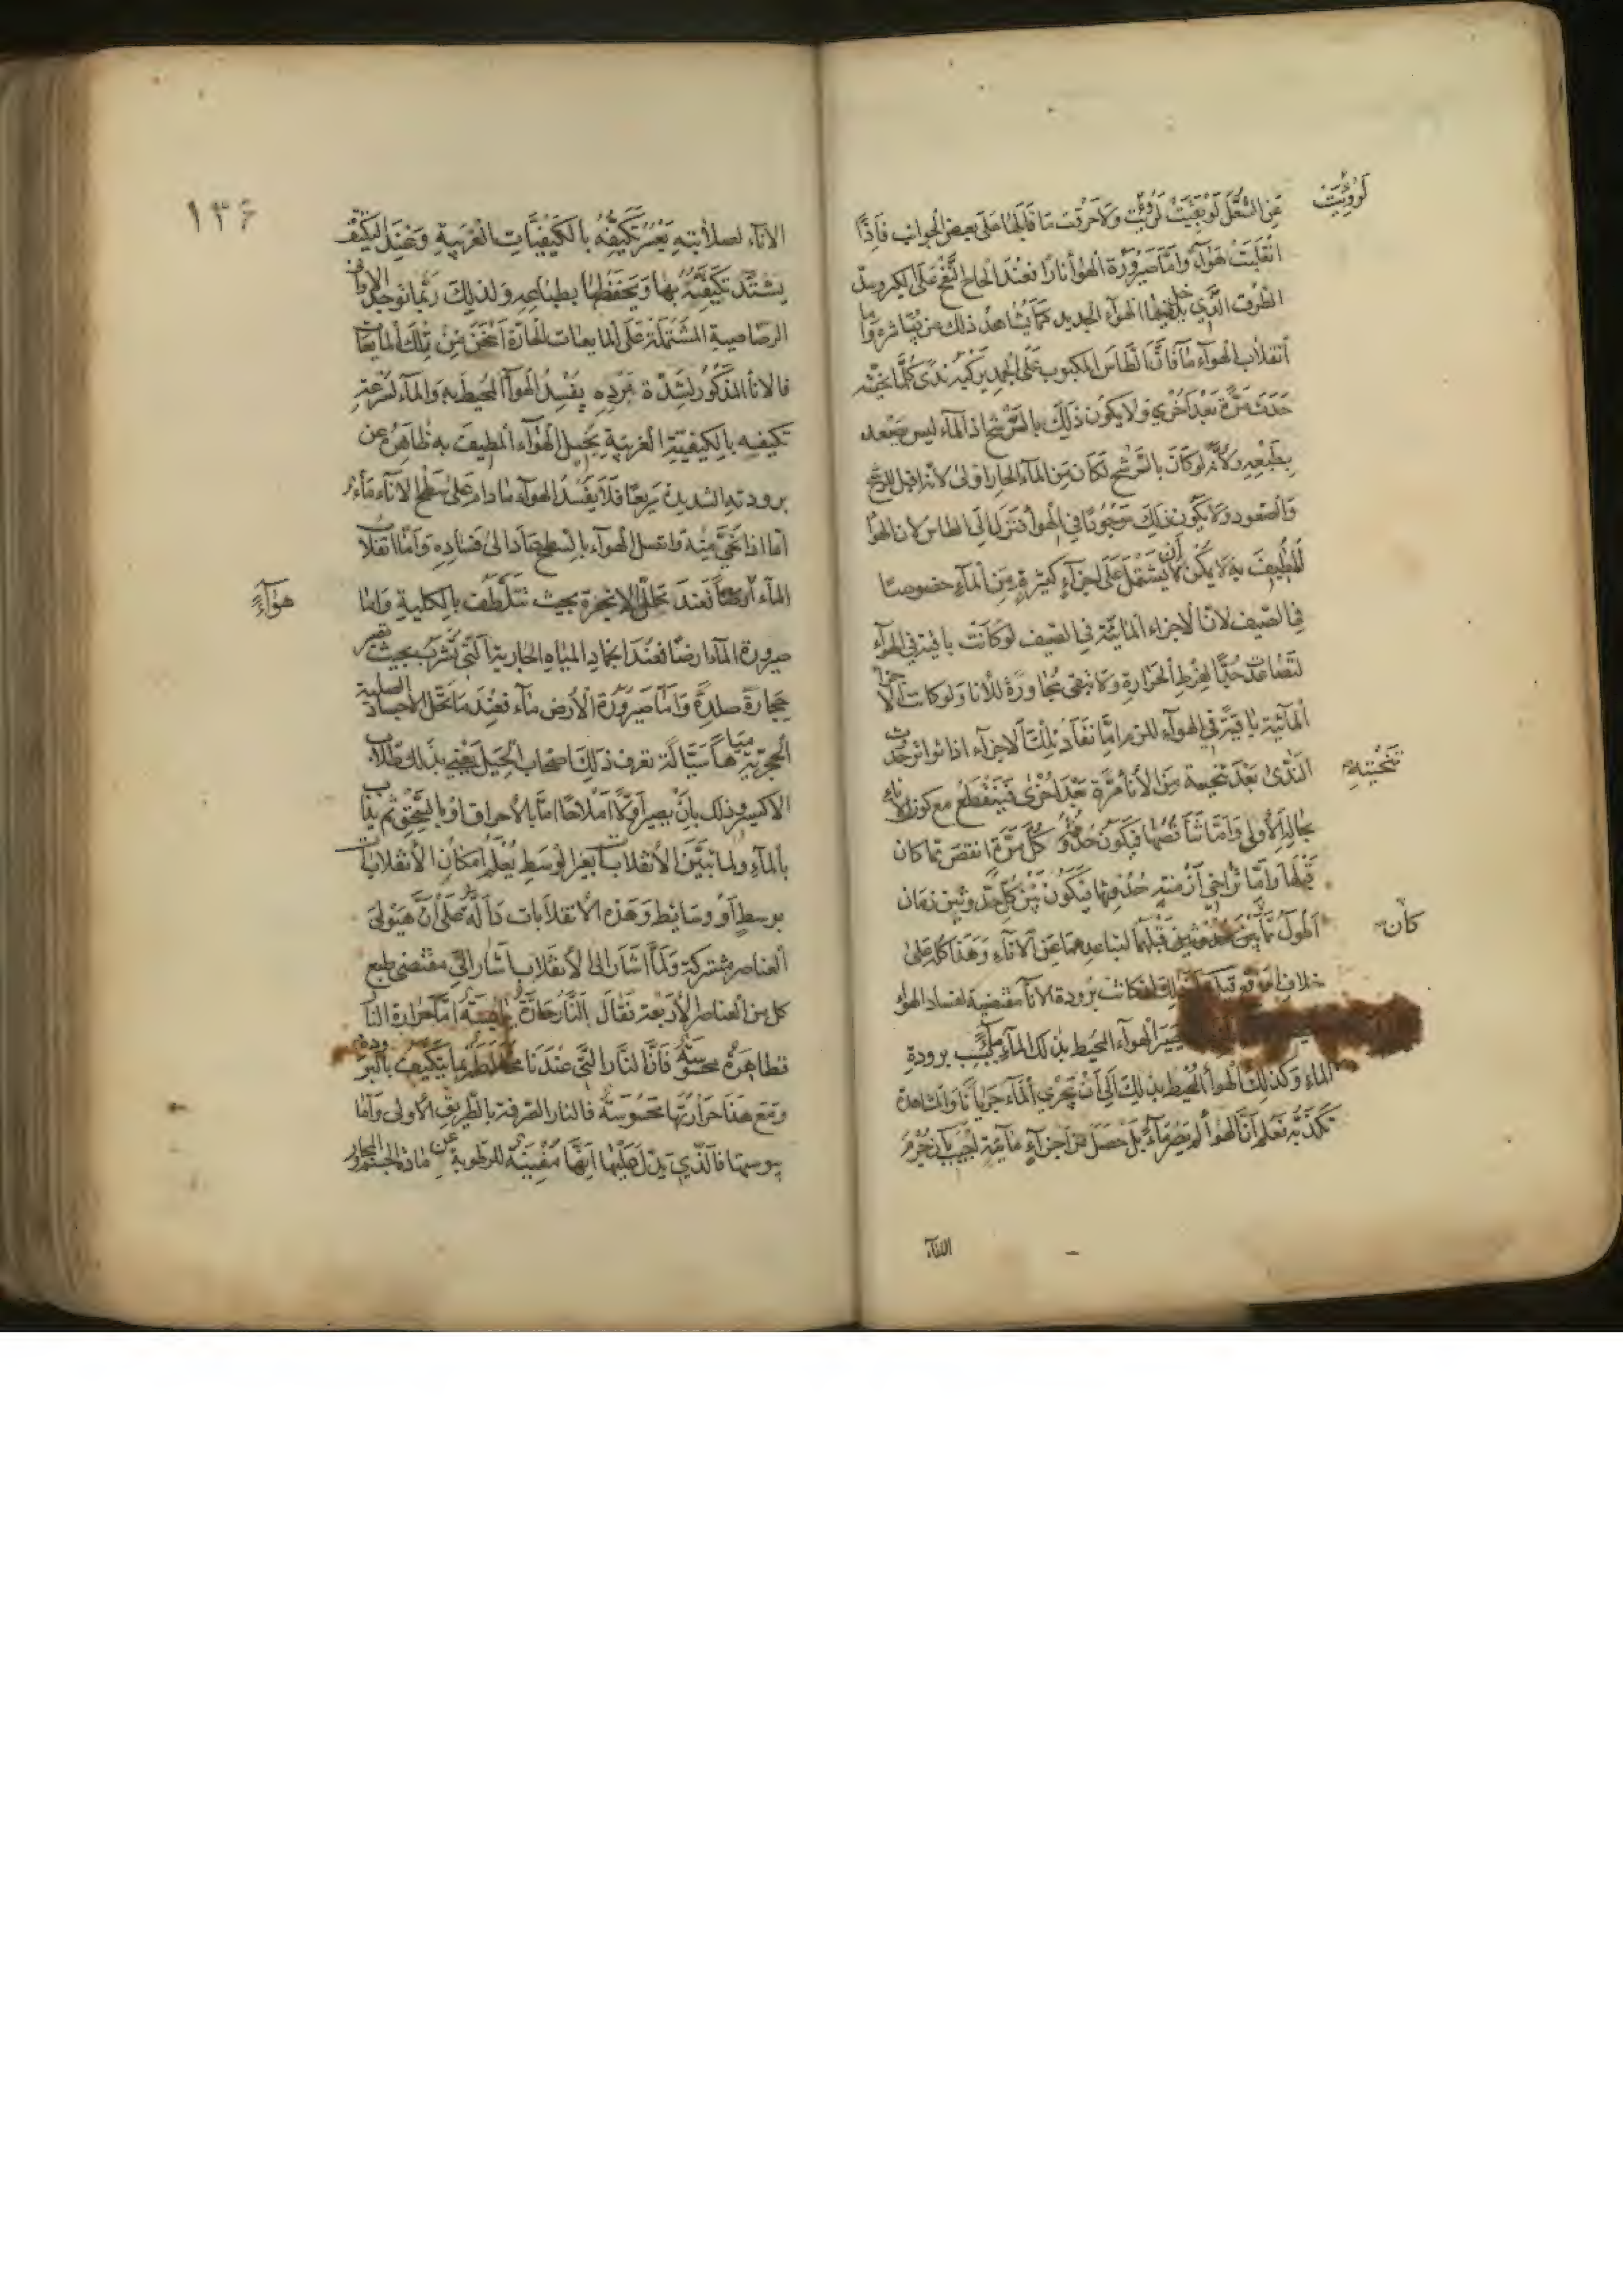 عن الشعل لو بقيت لرؤيت ولاحرقت ما قابلها على بعض الجوانب فاذا
لرؤيت
انقلبت هواء واما صيرورة الهواء نارا فعند الحاح النفخ على الكير وسد
الطرق التي يدخل فيها الهواء الجديد كما يشاهد ذلك من يباشره واما
انقلاب الهواء ماء فان الطاس المكبوب على الجمد يركبه ندى كلما نحيته
حدث مرة بعد اخرى ولا يكون ذلك بالترشح اذ الماء ليس يصعد
بطبعه ولانه لو كان بالترشح لكان من الماء الحار اولى لانه اقبل للترشح
والصعود ولا يكون ذلك موجودا في الهواء فنزل الى الطاس لان الهواء
المطيف به لا يمكن ان يشتمل على اجزاء كثيرة من الماء خصوصا
في الصيف لان الاجزاء المائية في الصيف لو كانت باقية في الهواء
لتصاعدت جدا لفرط الحرارة ولا تبقى مجاورة للاناء ولو كانت الاجزاء
المائية باقية في الهواء للزم اما نفاد تلك الاجزاء اذا تواتر حدوث
الندى بعد تنحيته من الاناء مرة بعد اخرى فينقطع مع كون الاناء
تنحيته
بحاله الاولى واما تناقصها فيكون حدوثه كل مرة انقص مما كان
قبلها واما تراخي ازمنة حدوثها فيكون بين كل حدوثين زمان
اطول مما بين حدوثين قبلهما لتباعدهما عن الاناء وهذا كله على
كان
خلاف الواقع قيل لو كانت برودة الاناء مقتضية لفساد الهواء
يصير الهواء المحيط بذلك الماء بسبب برودة
الماء وكذلك الهواء المحيط بذلك الى ان يجري الماء جريانا والمشاهدة
تكذبه فعلم ان الهواء لم يصر ماء بل حصل من اجزاء مائية اجيب بان جرم
الاناء
١٣٤
الاناء لصلابته يعسر تكيفه بالكيفيات الغريبة وعند التكيف
يشتد تكيفه بها ويحفظها بطباعه ولذلك ربما توجد الاواني
الرصاصية المشتملة على المايعات الحارة اسخن من تلك المايعات
فالاناء المذكور لشدة تبرده يفسد الهواء المحيط به والماء لسرعة
تكيفه بالكيفية الغريبة يحيل الهواء المطيف به ظاهره عن
برودته الشديدة سريعا فلا يفسد الهواء ما دام على سطح الاناء ماء
اما اذا نحي منه واتصل الهواء بالسطح عاد الى فساده واما انقلاب
الماء فعند تحلل الابخرة بحيث تتلطف بالكلية واما
هواء
صيرورة الماء ارضا فعند انجماد المياه الجارية التي تشرب بحيث تصير
حجارة صلدة واما صيرورة الارض ماء فعند ما تحل الاجساد الصلبة
الحجرية مياها سيالة تعرف ذلك اصحاب الحيل يعني بذلك طلاب
الاكسير وذلك بان يصير اولا املاحا اما بالاحراق او بالسحق ثم يذاب
بالماء ولما تبين الانقلابات بغير الوسط يعلم امكان الانقلابات
بوسط او وسائط وهذه الانقلابات دالة على ان هيولى
العناصر مشتركة ولما اشار الى الانقلاب اشار الى مقتضى طبع
كل من العناصر الاربعة فقال النار حارة يابسة اما حرارة النار
فظاهرة محسوسة فان النار التي عندنا مخلوطة بما يتكيف بالبرودة
ومع هذا حرارتها محسوسة فالنار الصرفة بالطريق الاولى واما
يبوستها فالذي يدل عليها انها مفنية للرطوبة عن مادة الجسم المجاور